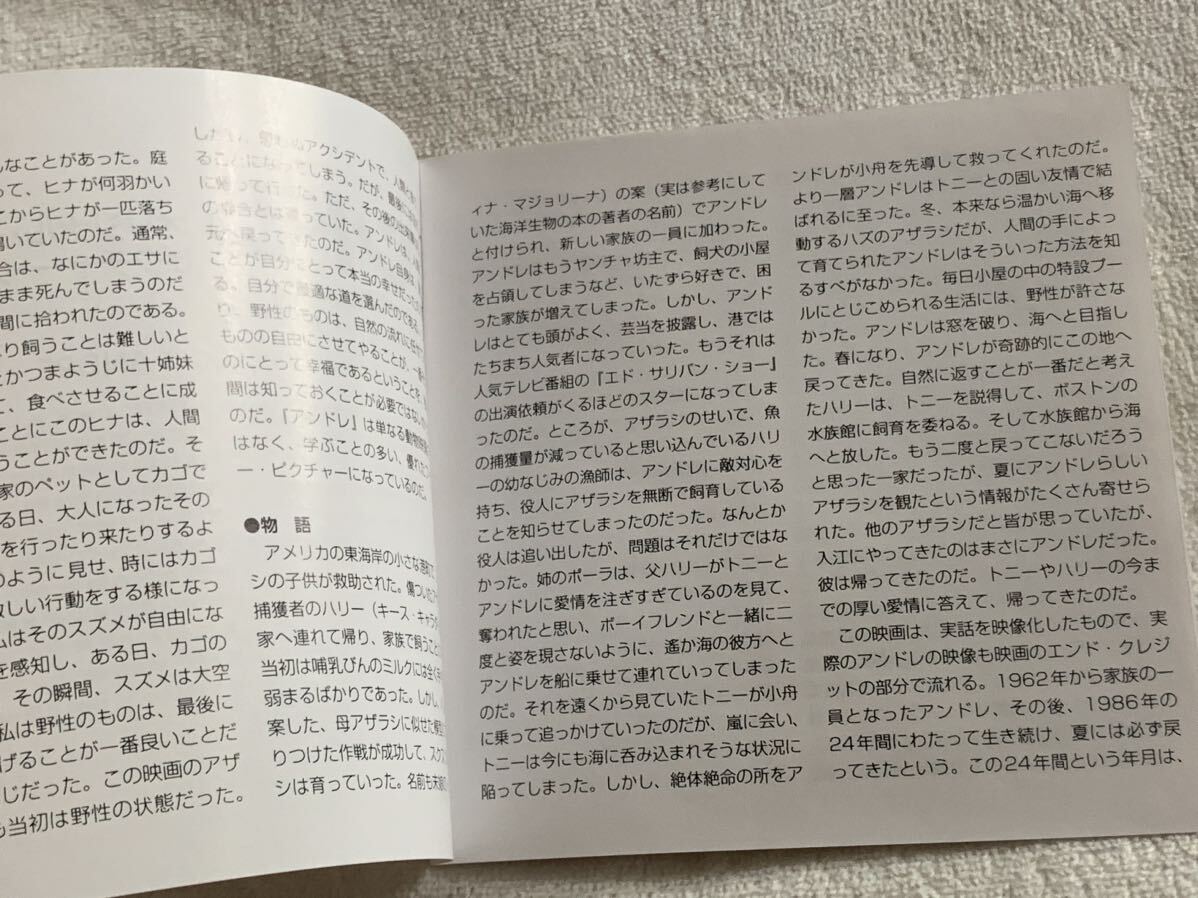 んなことがあった。庭
って、ヒナが何羽かい
こからヒナが一匹落ち
いていたのだ。通常、
合は、なにかのエサに
まま死んでしまうのだ
間に拾われたのである。
り飼うことは難しいと
とかつまようじに十姉妹
て、食べさせることに成
ことにこのヒナは、人間
うことができたのだ。そ
家のペットとしてカゴで
る日、大人になったその
を行ったり来たりするよ
のように見せ、時にはカゴ
激しい行動をする様になっ
私はそのスズメが自由にな
を感知し、ある日、カゴの
その瞬間、スズメは大空
私は野性のものは、最後に
げることが一番良いことだ
じだった。この映画のアザ
も当初は野性の状態だった。
アクシデントで、人間
ることになってしまう。だが、最後
に帰って行った。ただ、その後の
の場合とは違っていた。アンドレは、
元へ戻ってきたのだ。アンドレ自身
ことが自分にとって本当の幸せだった
る。自分で最適な道を選んだのである
り、野性のものは、自然の流れに任せ
ものの自由にさせてやることが、一番
のにとって幸福であるということを、
間は知っておくことが必要ではない
のだ。『アンドレ』は単なる動物
はなく、学ぶことの多い、優れた
ー・ピクチャーになっているのだ。
●物 語
アメリカの東海岸の小さな港町で
シの子供が救助された。傷ついた
捕獲者のハリー（キース・キャラ
家へ連れて帰り、家族で飼うこと
当初は哺乳びんのミルクには全く
弱まるばかりであった。しかし、
案した、母アザラシに似せた
りつけた作戦が成功して、スク
シは育っていった。名前も末娘
ィナ・マジョリーナ）の案（実は参考にして
いた海洋生物の本の著者の名前）でアンドレ
と付けられ、新しい家族の一員に加わった。
アンドレはもうヤンチャ坊主で、飼犬の小屋
を占領してしまうなど、いたずら好きで、困
った家族が増えてしまった。しかし、アンド
レはとても頭がよく、芸当を披露し、港では
たちまち人気者になっていった。もうそれは
人気テレビ番組の『エド・サリバン・ショー』
の出演依頼がくるほどのスターになってしま
ったのだ。ところが、アザラシのせいで、魚
の捕獲量が減っていると思い込んでいるハリ
ーの幼なじみの漁師は、アンドレに敵対心を
持ち、役人にアザラシを無断で飼育している
ことを知らせてしまったのだった。なんとか
役人は追い出したが、問題はそれだけではな
かった。姉のポーラは、父ハリーがトニーと
アンドレに愛情を注ぎすぎているのを見て、
奪われたと思い、ボーイフレンドと一緒に二
度と姿を現さないように、遙か海の彼方へと
アンドレを船に乗せて連れていってしまった
のだ。それを遠くから見ていたトニーが小舟
に乗って追っかけていったのだが、嵐に会い、
トニーは今にも海に呑み込まれそうな状況に
陥ってしまった。しかし、絶体絶命の所をア
ンドレが小舟を先導して救ってくれたのだ。
より一層アンドレはトニーとの固い友情で結
ばれるに至った。冬、本来なら温かい海へ移
動するハズのアザラシだが、人間の手によっ
て育てられたアンドレはそういった方法を知
るすべがなかった。毎日小屋の中の特設プー
ルにとじこめられる生活には、野性が許さな
かった。アンドレは窓を破り、海へと目指し
た。春になり、アンドレが奇跡的にこの地へ
戻ってきた。自然に返すことが一番だと考え
たハリーは、トニーを説得して、ボストンの
水族館に飼育を委ねる。そして水族館から海
へと放した。もう二度と戻ってこないだろう
と思った一家だったが、夏にアンドレらしい
アザラシを観たという情報がたくさん寄せら
れた。他のアザラシだと皆が思っていたが、
入江にやってきたのはまさにアンドレだった。
彼は帰ってきたのだ。トニーやハリーの今ま
での厚い愛情に答えて、帰ってきたのだ。
この映画は、実話を映像化したもので、実
際のアンドレの映像も映画のエンド・クレジ
ットの部分で流れる。1962年から家族の一
員となったアンドレ、その後、1986年の
24年間にわたって生き続け、夏には必ず戻
ってきたという。この24年間という年月は、